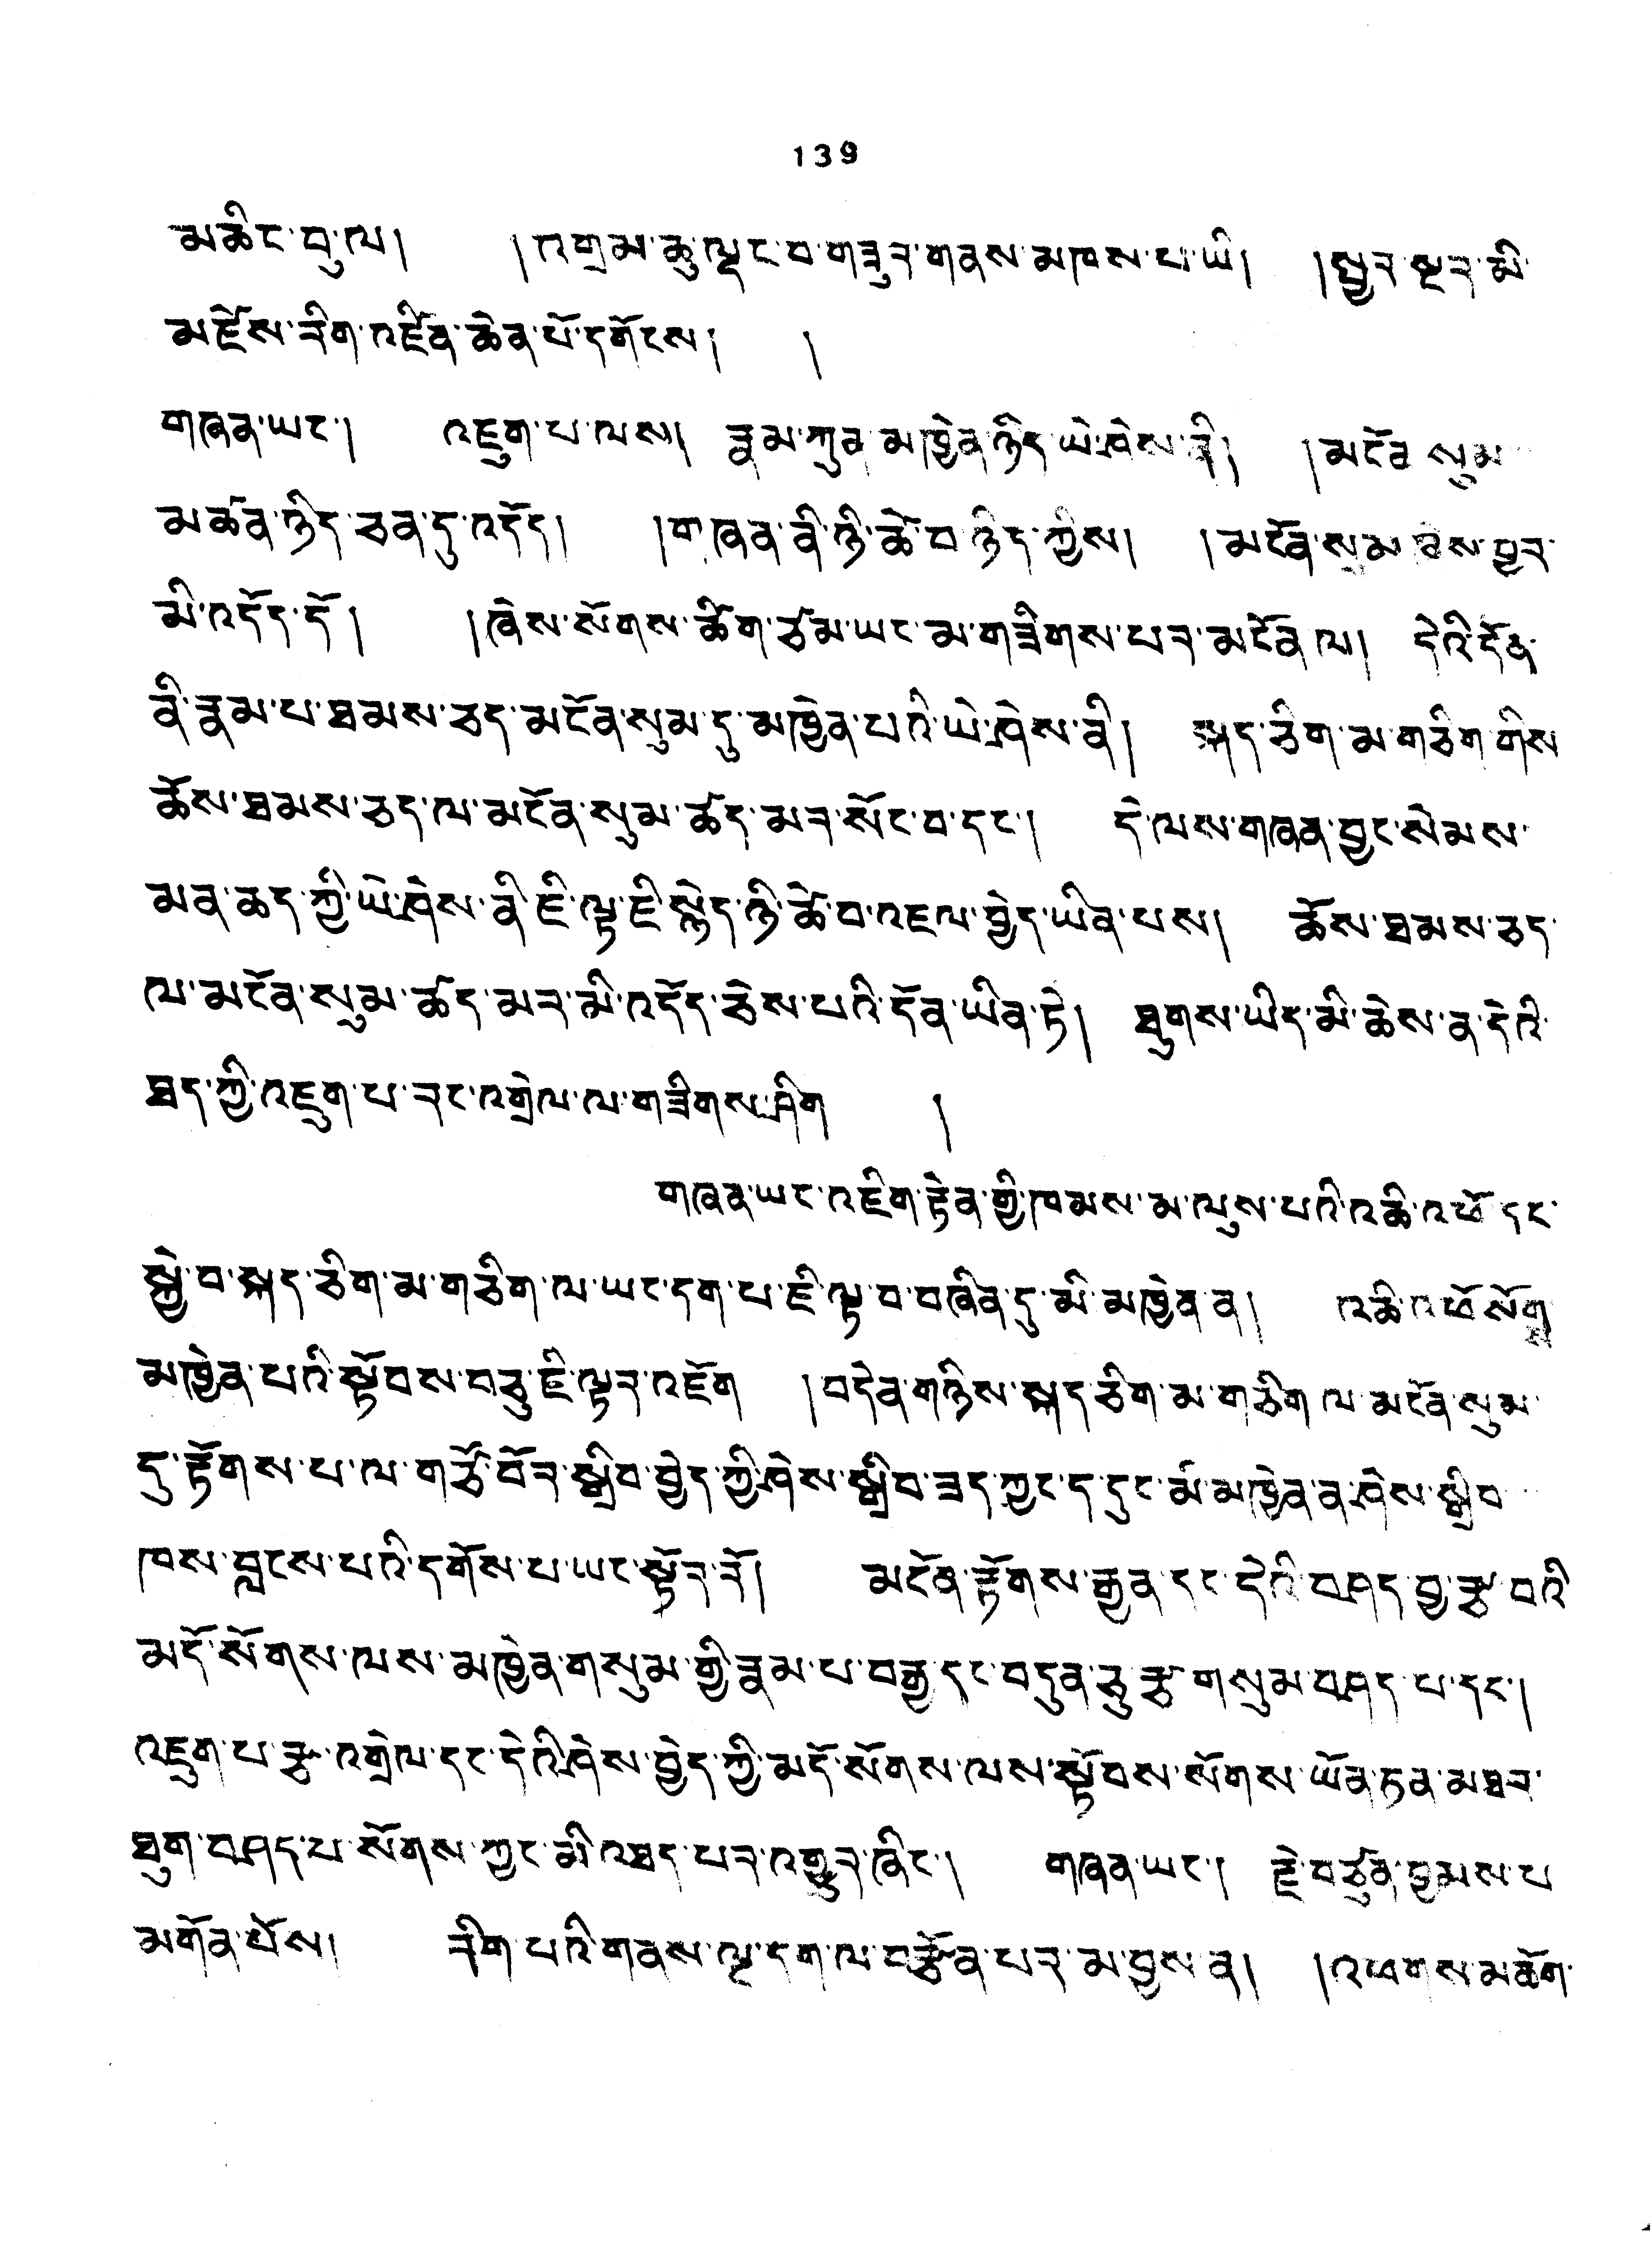 139
མཆིང་བུ་ལ། །འགྲམ་ཆུ་ལྡང་བ་གཟུར་གནས་མཁས་པ་ཡི། །སྤྱར་སྔར་མི་
མཛེས་རིག་འཛིན་ཆེན་པོ་དགོངས། །
གཞན་ཡང་། འཇུག་པ་ལས། རྣམ་ཀུན་མཁྱེན་ཉིད་ཡེ་ཤེས་ནི། །མངོན་སུམ་
མཚན་ཉིད་ཅན་དུ་འདོད། །གཞན་ནི་ཉི་ཚེ་བ་ཉིད་ཀྱིས། །མངོན་སུམ་ཞེས་བྱར་
མི་འདོད་དོ། །ཞེས་སོགས་ཚིག་ཙམ་ཡང་མ་གཟིགས་པར་མངོན་ལ། དེའི་དོན་
ནི་རྣམ་པ་ཐམས་ཅད་མངོན་སུམ་དུ་མཁྱེན་པའི་ཡེ་ཤེས་ནི། སྐད་ཅིག་མ་གཅིག་གིས
ཆོས་ཐམས་ཅད་ལ་མངོན་སུམ་ཚད་མར་སོང་བ་དང་། དེ་ལས་གཞན་བྱང་སེམས་
མན་ཆད་ཀྱི་ཡེ་ཤེས་ནི་ཇི་ལྟ་ཇི་སྙེད་ཉི་ཚེ་བ་འཇལ་བྱེད་ཡིན་པས། ཆོས་ཐམས་ཅད་
ལ་མངོན་སུམ་ཚད་མར་མི་འདོད་ཅེས་པའི་དོན་ཡིན་ཏེ། ཐུགས་ཡིད་མི་ཆེས་ན་དེའི་
ཐད་ཀྱི་འཇུག་པ་རང་འགྲེལ་ལ་གཟིགས་ཤིག །
གཞན་ཡང་འཇིག་རྟེན་གྱི་ཁམས་མ་ལུས་པའི་འཆི་འཕོ་དང་
སྐྱེ་བ་སྐད་ཅིག་མ་གཅིག་ལ་ཡང་དག་པ་ཇི་ལྟ་བ་བཞིན་དུ་མི་མཁྱེན་ན། འཆི་འཕོ་སོགས
མཁྱེན་པའི་སྟོབས་བཅུ་ཇི་ལྟར་འཇོག །བདེན་གཉིས་སྐད་ཅིག་མ་གཅིག་ལ་མངོན་སུམ་
དུ་རྟོགས་པ་ལ་གཙོ་བོར་སྒྲིབ་བྱེད་ཀྱི་ཤེས་སྒྲིབ་ཟད་ཀྱང་ད་དུང་མི་མཁྱེན་ན་ཤེས་སྒྲིབ
ཁས་བླངས་པའི་དགོས་པ་ཡང་སྟོར་རོ། མངོན་རྟོགས་རྒྱན་དང་དེའི་བཤད་བྱ་རྩ་བའི
མདོ་སོགས་ལས་མཁྱེན་གསུམ་གྱི་རྣམ་པ་བརྒྱ་དང་བདུན་ཅུ་རྩ་གསུམ་བཤད་པ་དང་།
འཇུག་པ་རྩ་འགྲེལ་དང་དེའི་ཤེས་བྱེད་ཀྱི་མདོ་སོགས་ལས་སྟོབས་སོགས་ཡོན་ཏན་མཐར་
ཐུག་བཤད་པ་སོགས་ཀྱང་མི་འཐད་པར་འགྱུར་ཞིང་། གཞན་ཡང་། རྗེ་བཙུན་བྱམས་པ
མགོན་པོས། རིག་པའི་གནས་ལྔ་དག་ལ་བརྩོན་པར་མ་བྱས་ན། །འཕགས་མཆོག་